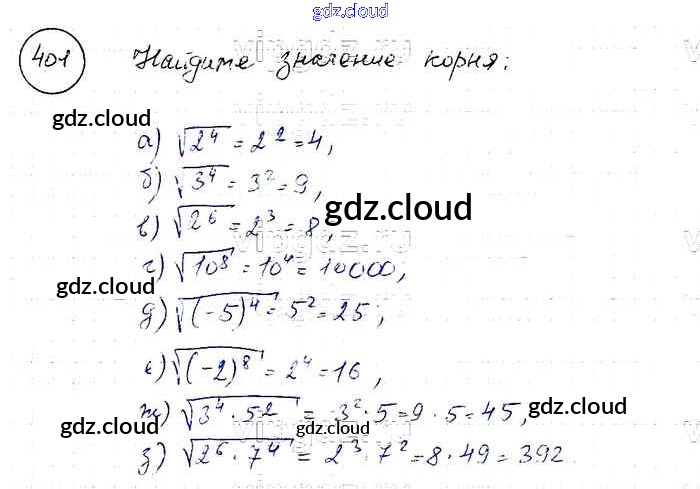 gdz.cloud
401 Найдите значение корня:
gdz.cloud
а) √2⁴ = 2² = 4,
б) √3⁴ = 3² = 9,
gdz.cloud
в) √2⁶ = 2³ = 8,
г) √10⁸ = 10⁴ = 10000,
gdz.cloud
д) √(-5)⁴ = 5² = 25;
е) √(-2)⁸ = 2⁴ = 16,
ж) √3⁴ · 5² = 3² · 5 = 9 · 5 = 45,
gdz.cloud
gdz.cloud gdz.cloud
з) √2⁶ · 7⁴ = 2³ · 7² = 8 · 49 = 392